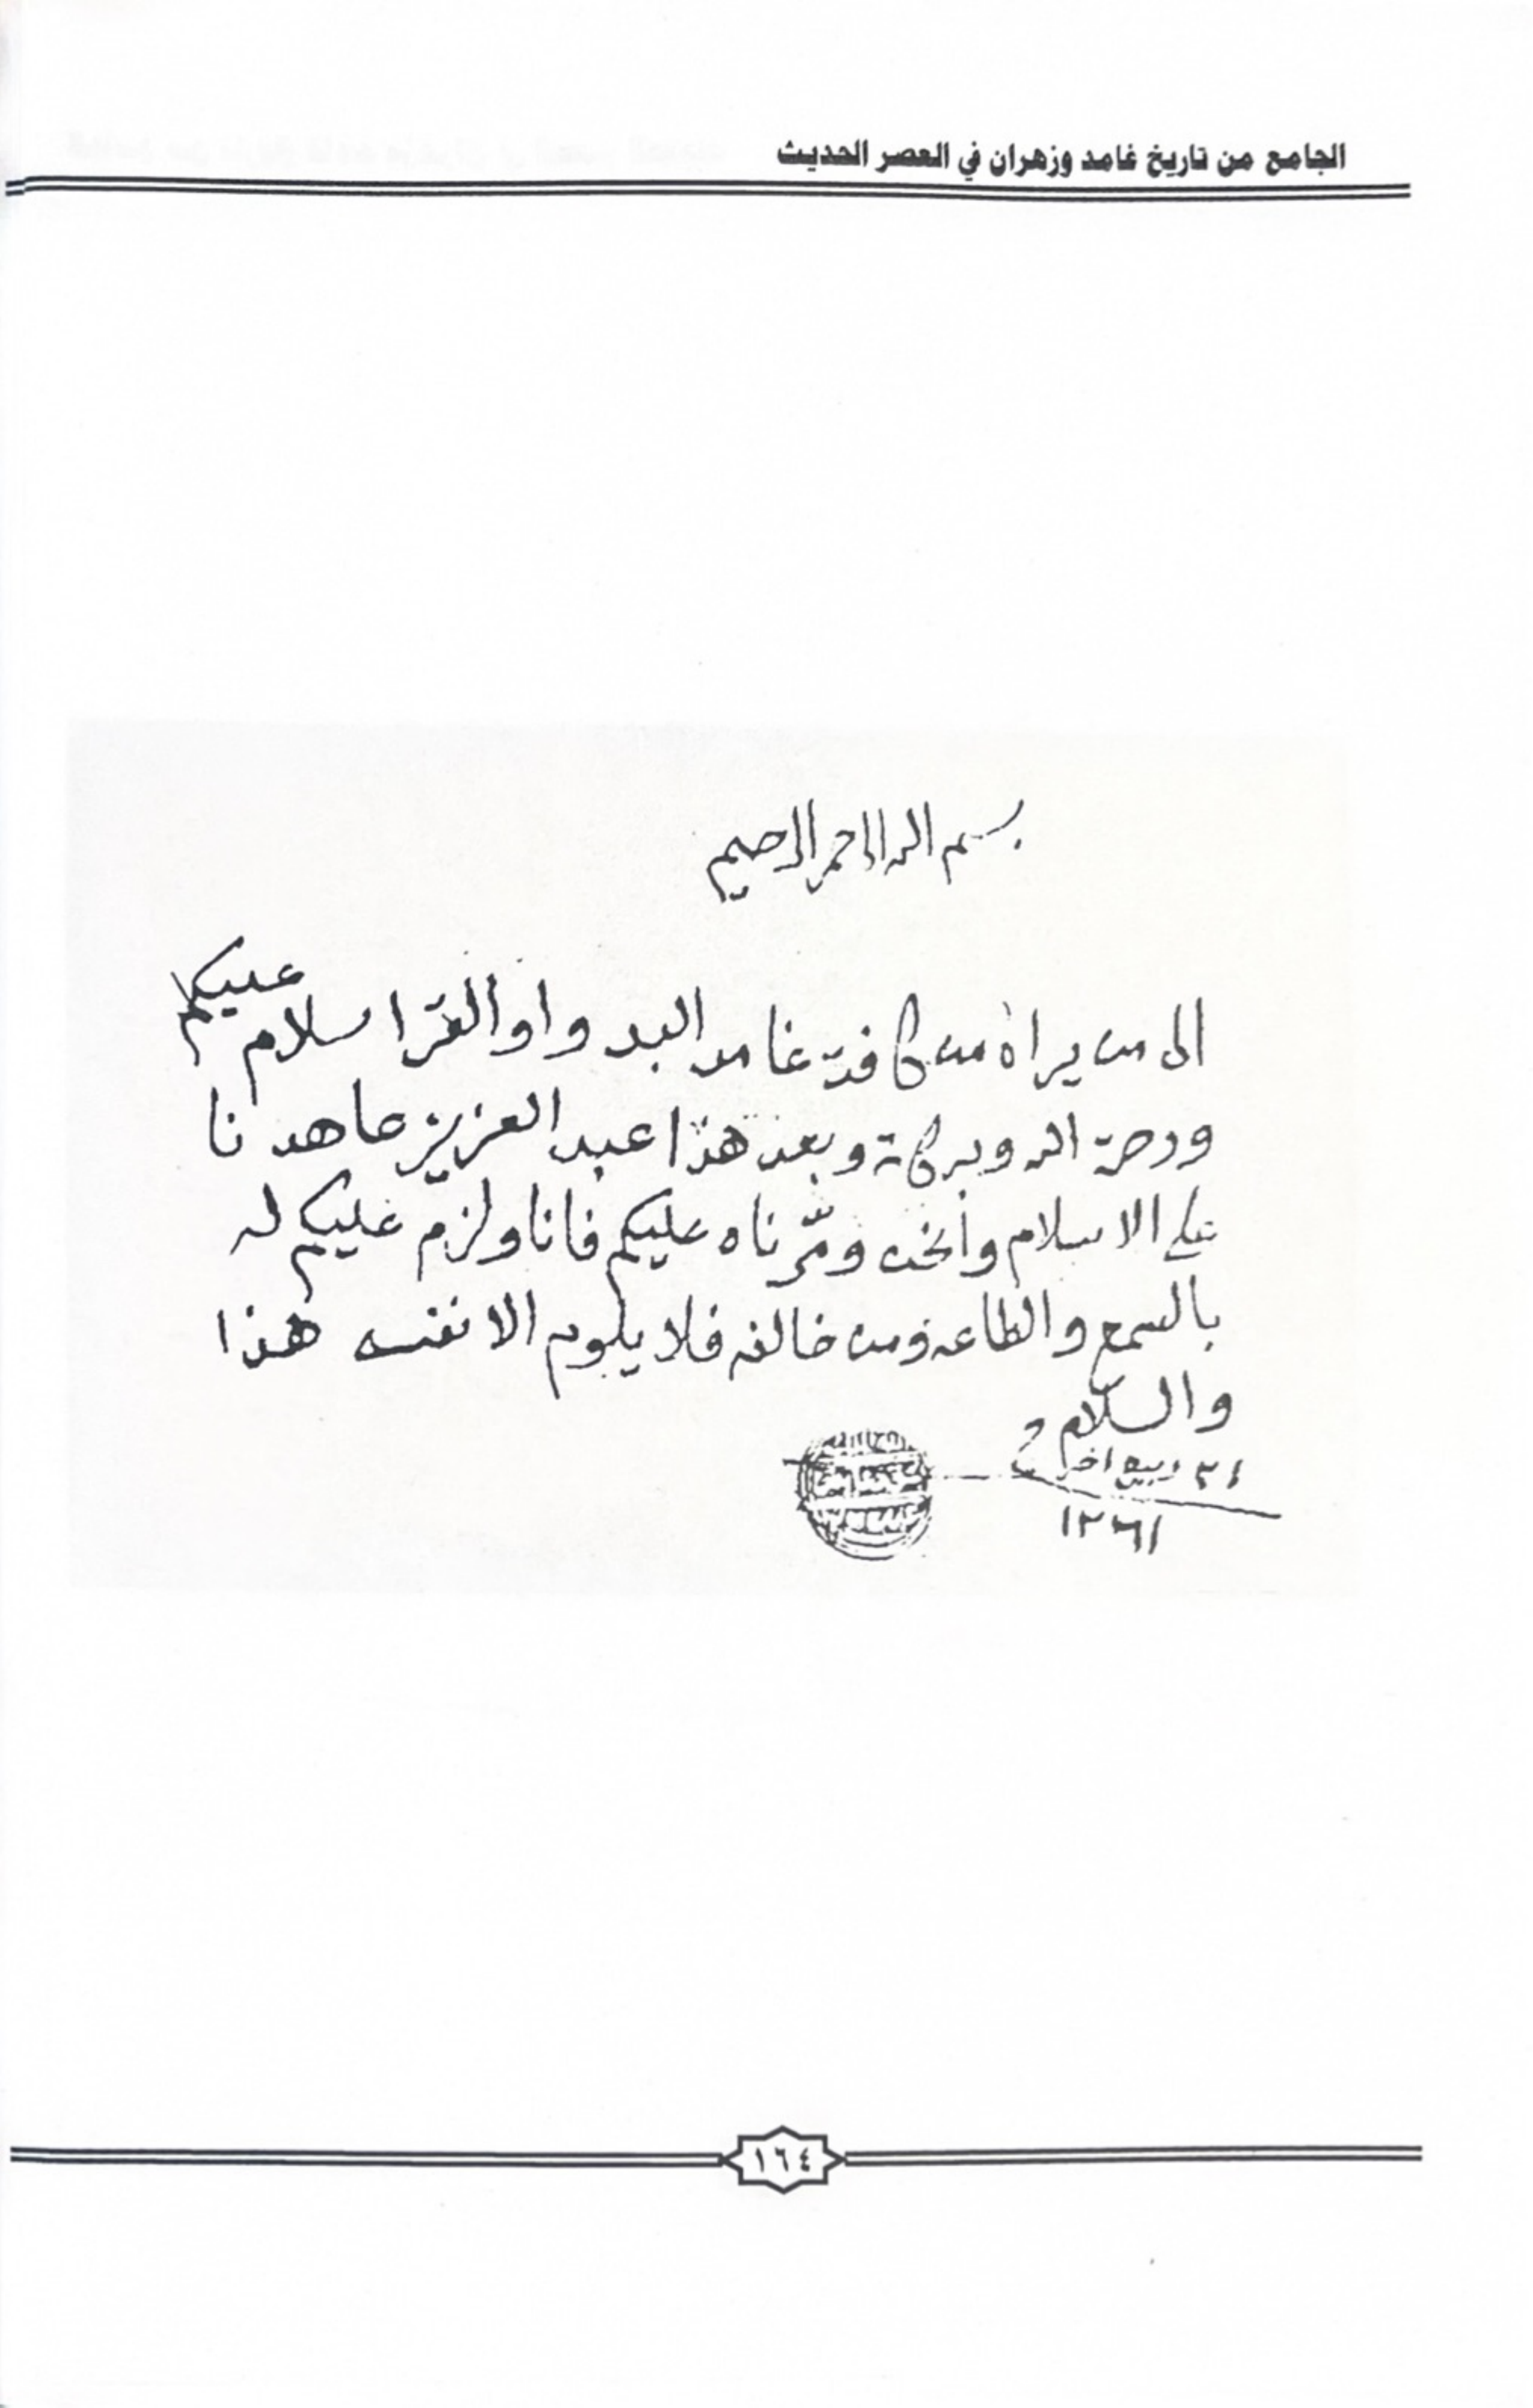 الجامع من تاريخ غامد وزهران في العصر الحديث
بسم الله الرحمن الرحيم
الى من يراه من كافة غامد البدو او القرا سلام عليكم
ورحمة الله وبركاته وبعد هذا عبد العزيز عاهدنا
على الاسلام ومرناه عليكم فانا ولزم عليكم له
بالسمع والطاعه ومن خالفه فلا يلوم الا نفسه هذا
والسلام
٢١ ربيع اخر
١٢٦١
١٦٤